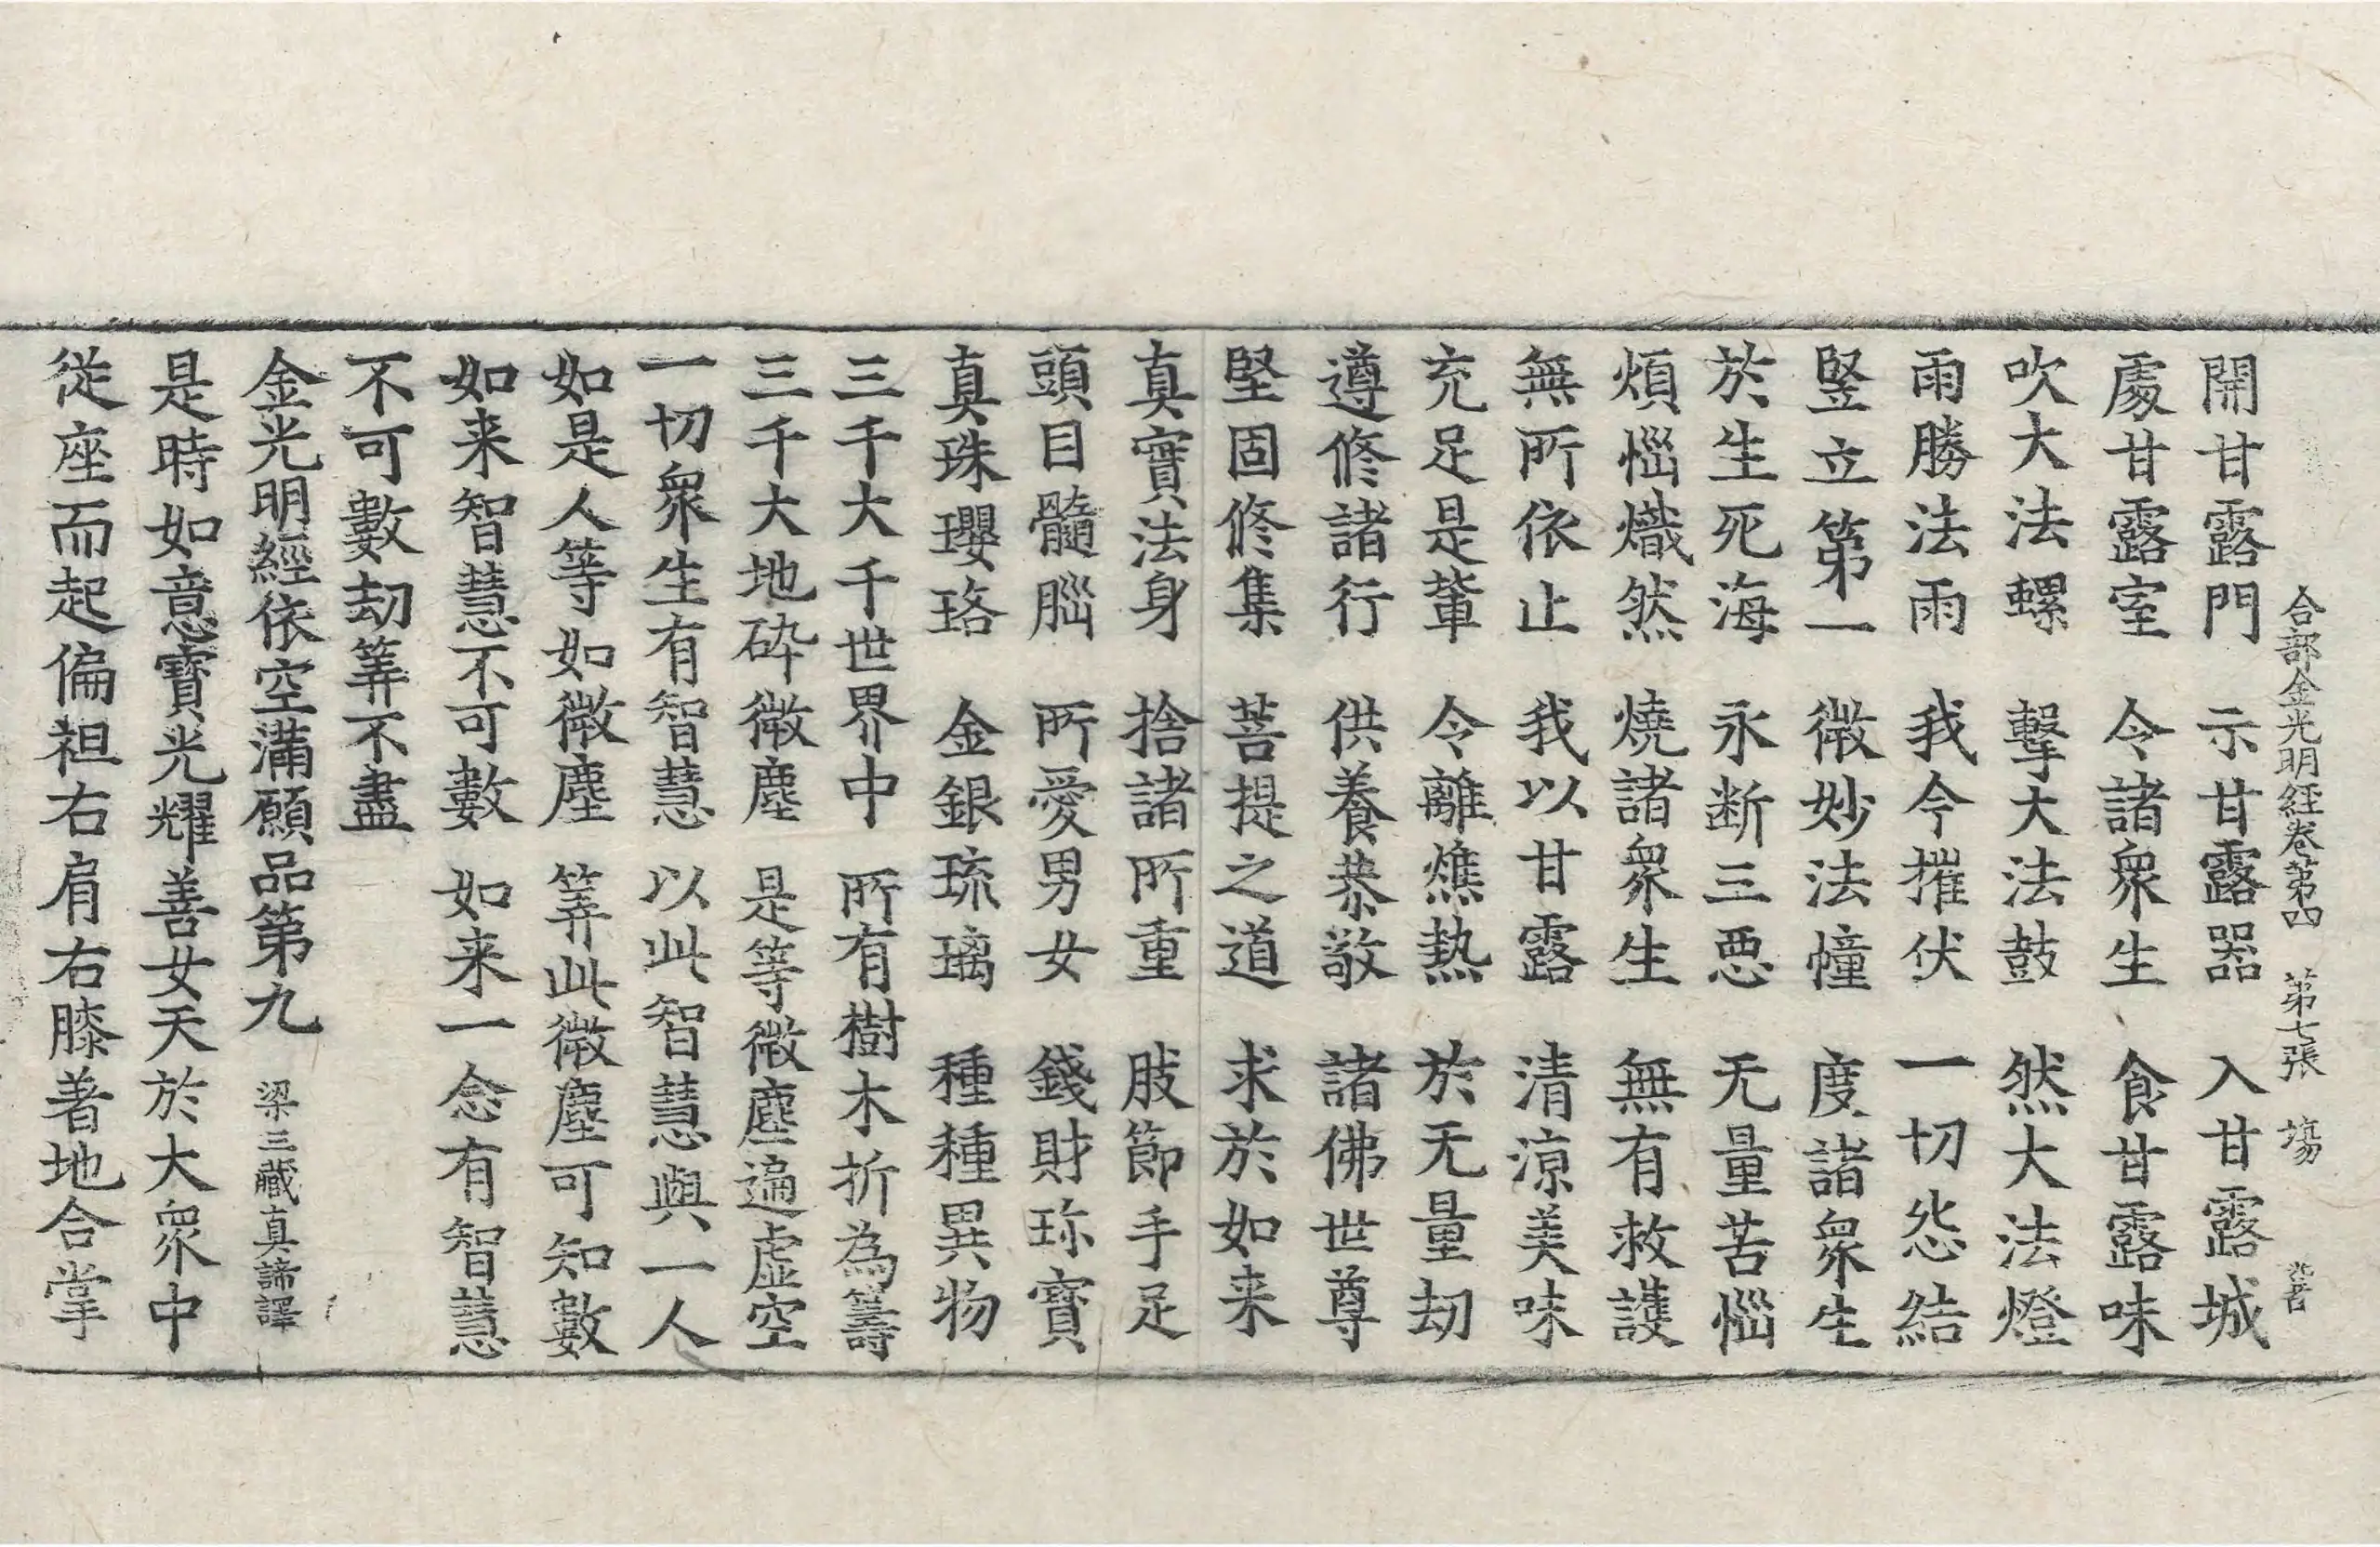 合部金光明経巻第四 第七張 塲
開甘露門 示甘露器 入甘露城
處甘露室 令諸衆生 食甘露味
吹大法螺 擊大法鼓 然大法燈
雨勝法雨 我今摧伏 一切怨結
竪立第一 微妙法幢 度諸衆生
於生死海 永断三悪 无量苦惱
煩惱熾然 燒諸衆生 無有救護
無所依止 我以甘露 清涼美味
充足是輩 令離燋熱 於无量劫
遵修諸行 供養恭敬 諸佛世尊
堅固修集 菩提之道 求於如来
真實法身 捨諸所重 肢節手足
頭目髓腦 所愛男女 錢財珎寶
真珠瓔珞 金銀琉璃 種種異物
三千大千世界中 所有樹木折為籌
三千大地碎微塵 是等微塵遍虛空
一切衆生有智慧 以此智慧與一人
如是人等如微塵 筭此微塵可知數
如来智慧不可數 如来一念有智慧
不可數劫筭不盡
金光明經依空滿願品第九 梁三藏真諦譯
是時如意寶光耀善女天於大衆中
従座而起偏袒右肩右膝著地合掌